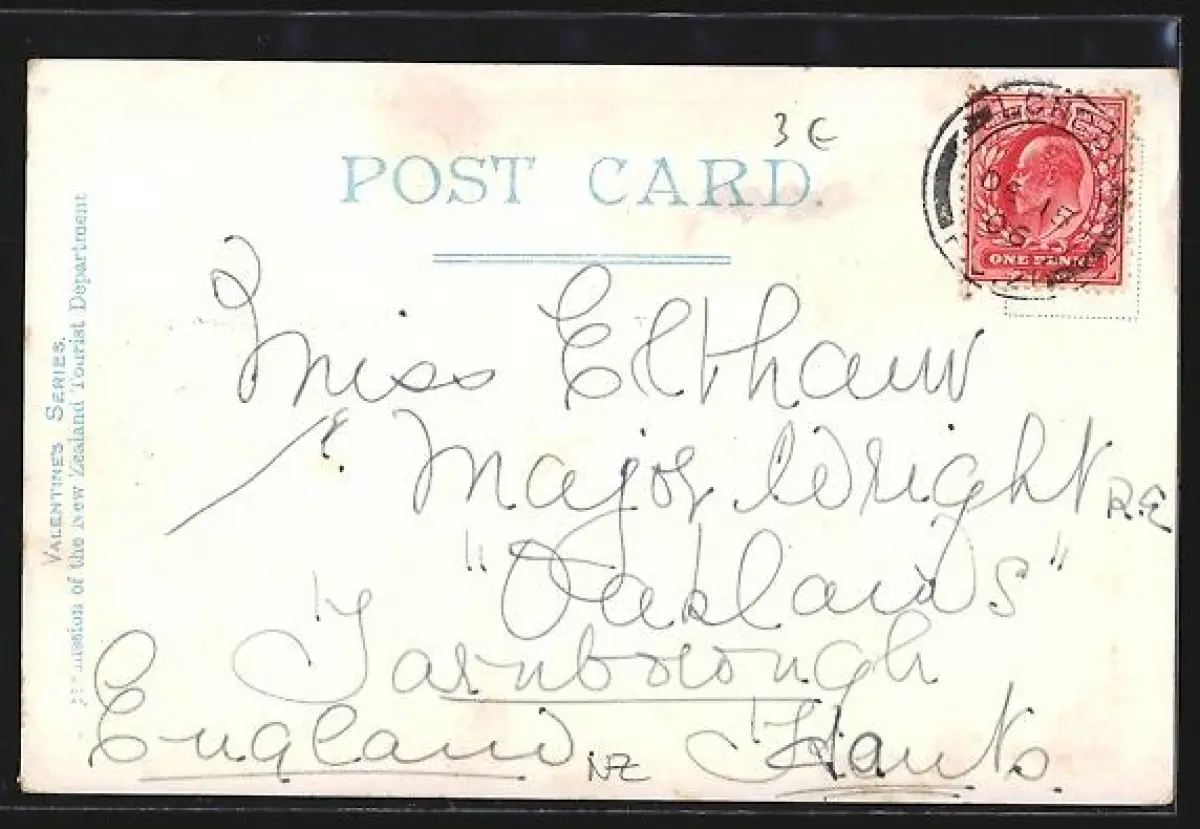 3 €
POST CARD.
ONE PENNY
VALENTINE'S SERIES.
permission of the New Zealand Tourist Department
Miss Elthaw
c/o Major Wright R.E
"Oaklands"
Farnborough
England NZ Hants